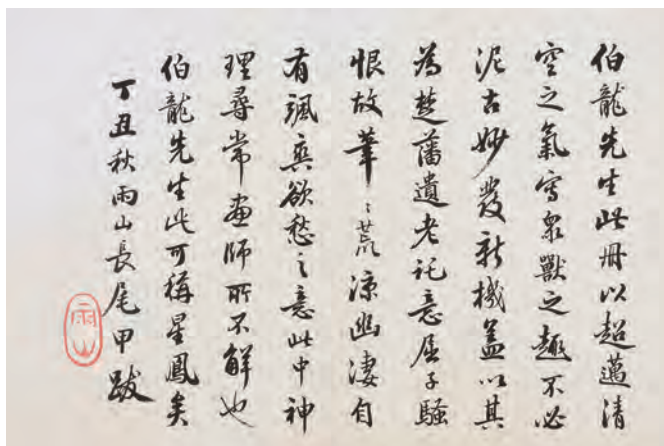 伯龍先生此冊以超邁清
空之氣寫眾獸之趣不必
泥古妙發新機蓋以其
為楚藩遺老託意屈子騷
恨故筆〻荒涼幽淒自
有颯爽欲愁之意此中神
理尋常畫師所不解也
伯龍先生此可稱星鳳矣
丁丑秋雨山長尾甲跋
雨山